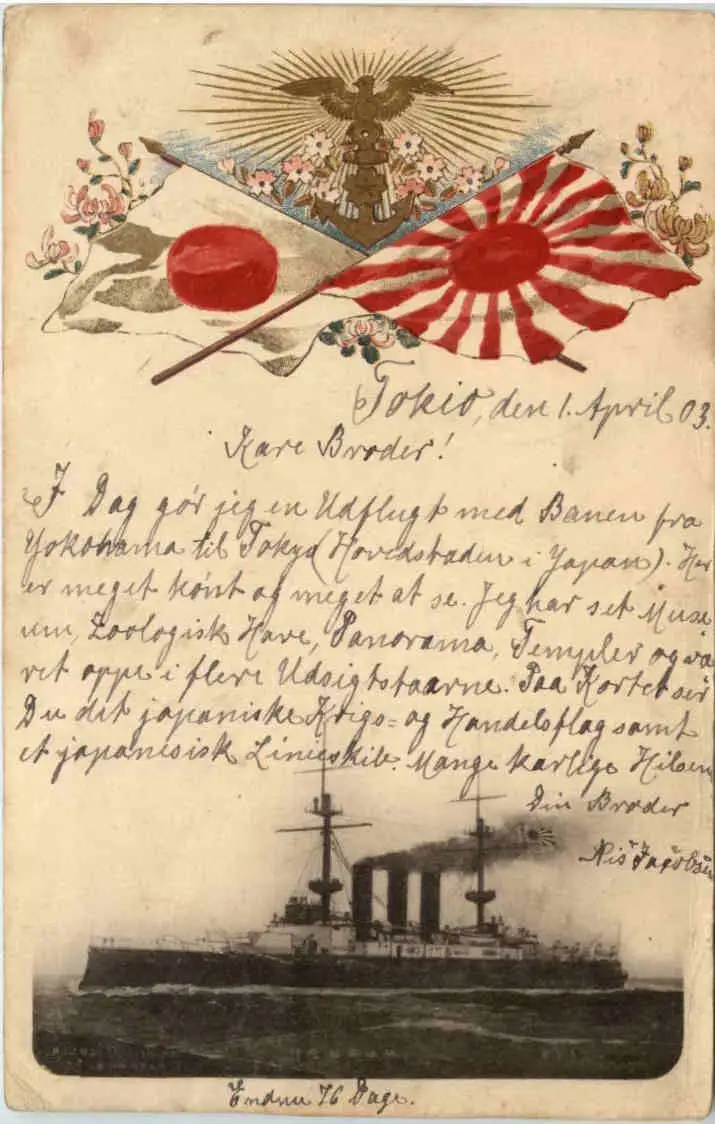 Tokio, den 1. April 03.
Kære Broder!
I Dag gör jeg en Udflugt med Banen fra
Yokohama til Tokyo (Hovedstaden i Japan). Her
er meget könt og meget at se. Jeg har set Muse
um, Zoologisk Have, Panorama, Templer og væ
ret oppe i flere Udsigtstaarne. Paa Kortet ser
Du det japaniske Krigs= og Handelsflag samt
et japanesisk Linieskib. Mange kærlige Hilsen
Din Broder
Nis Jacobsen
Endnu 76 Dage.